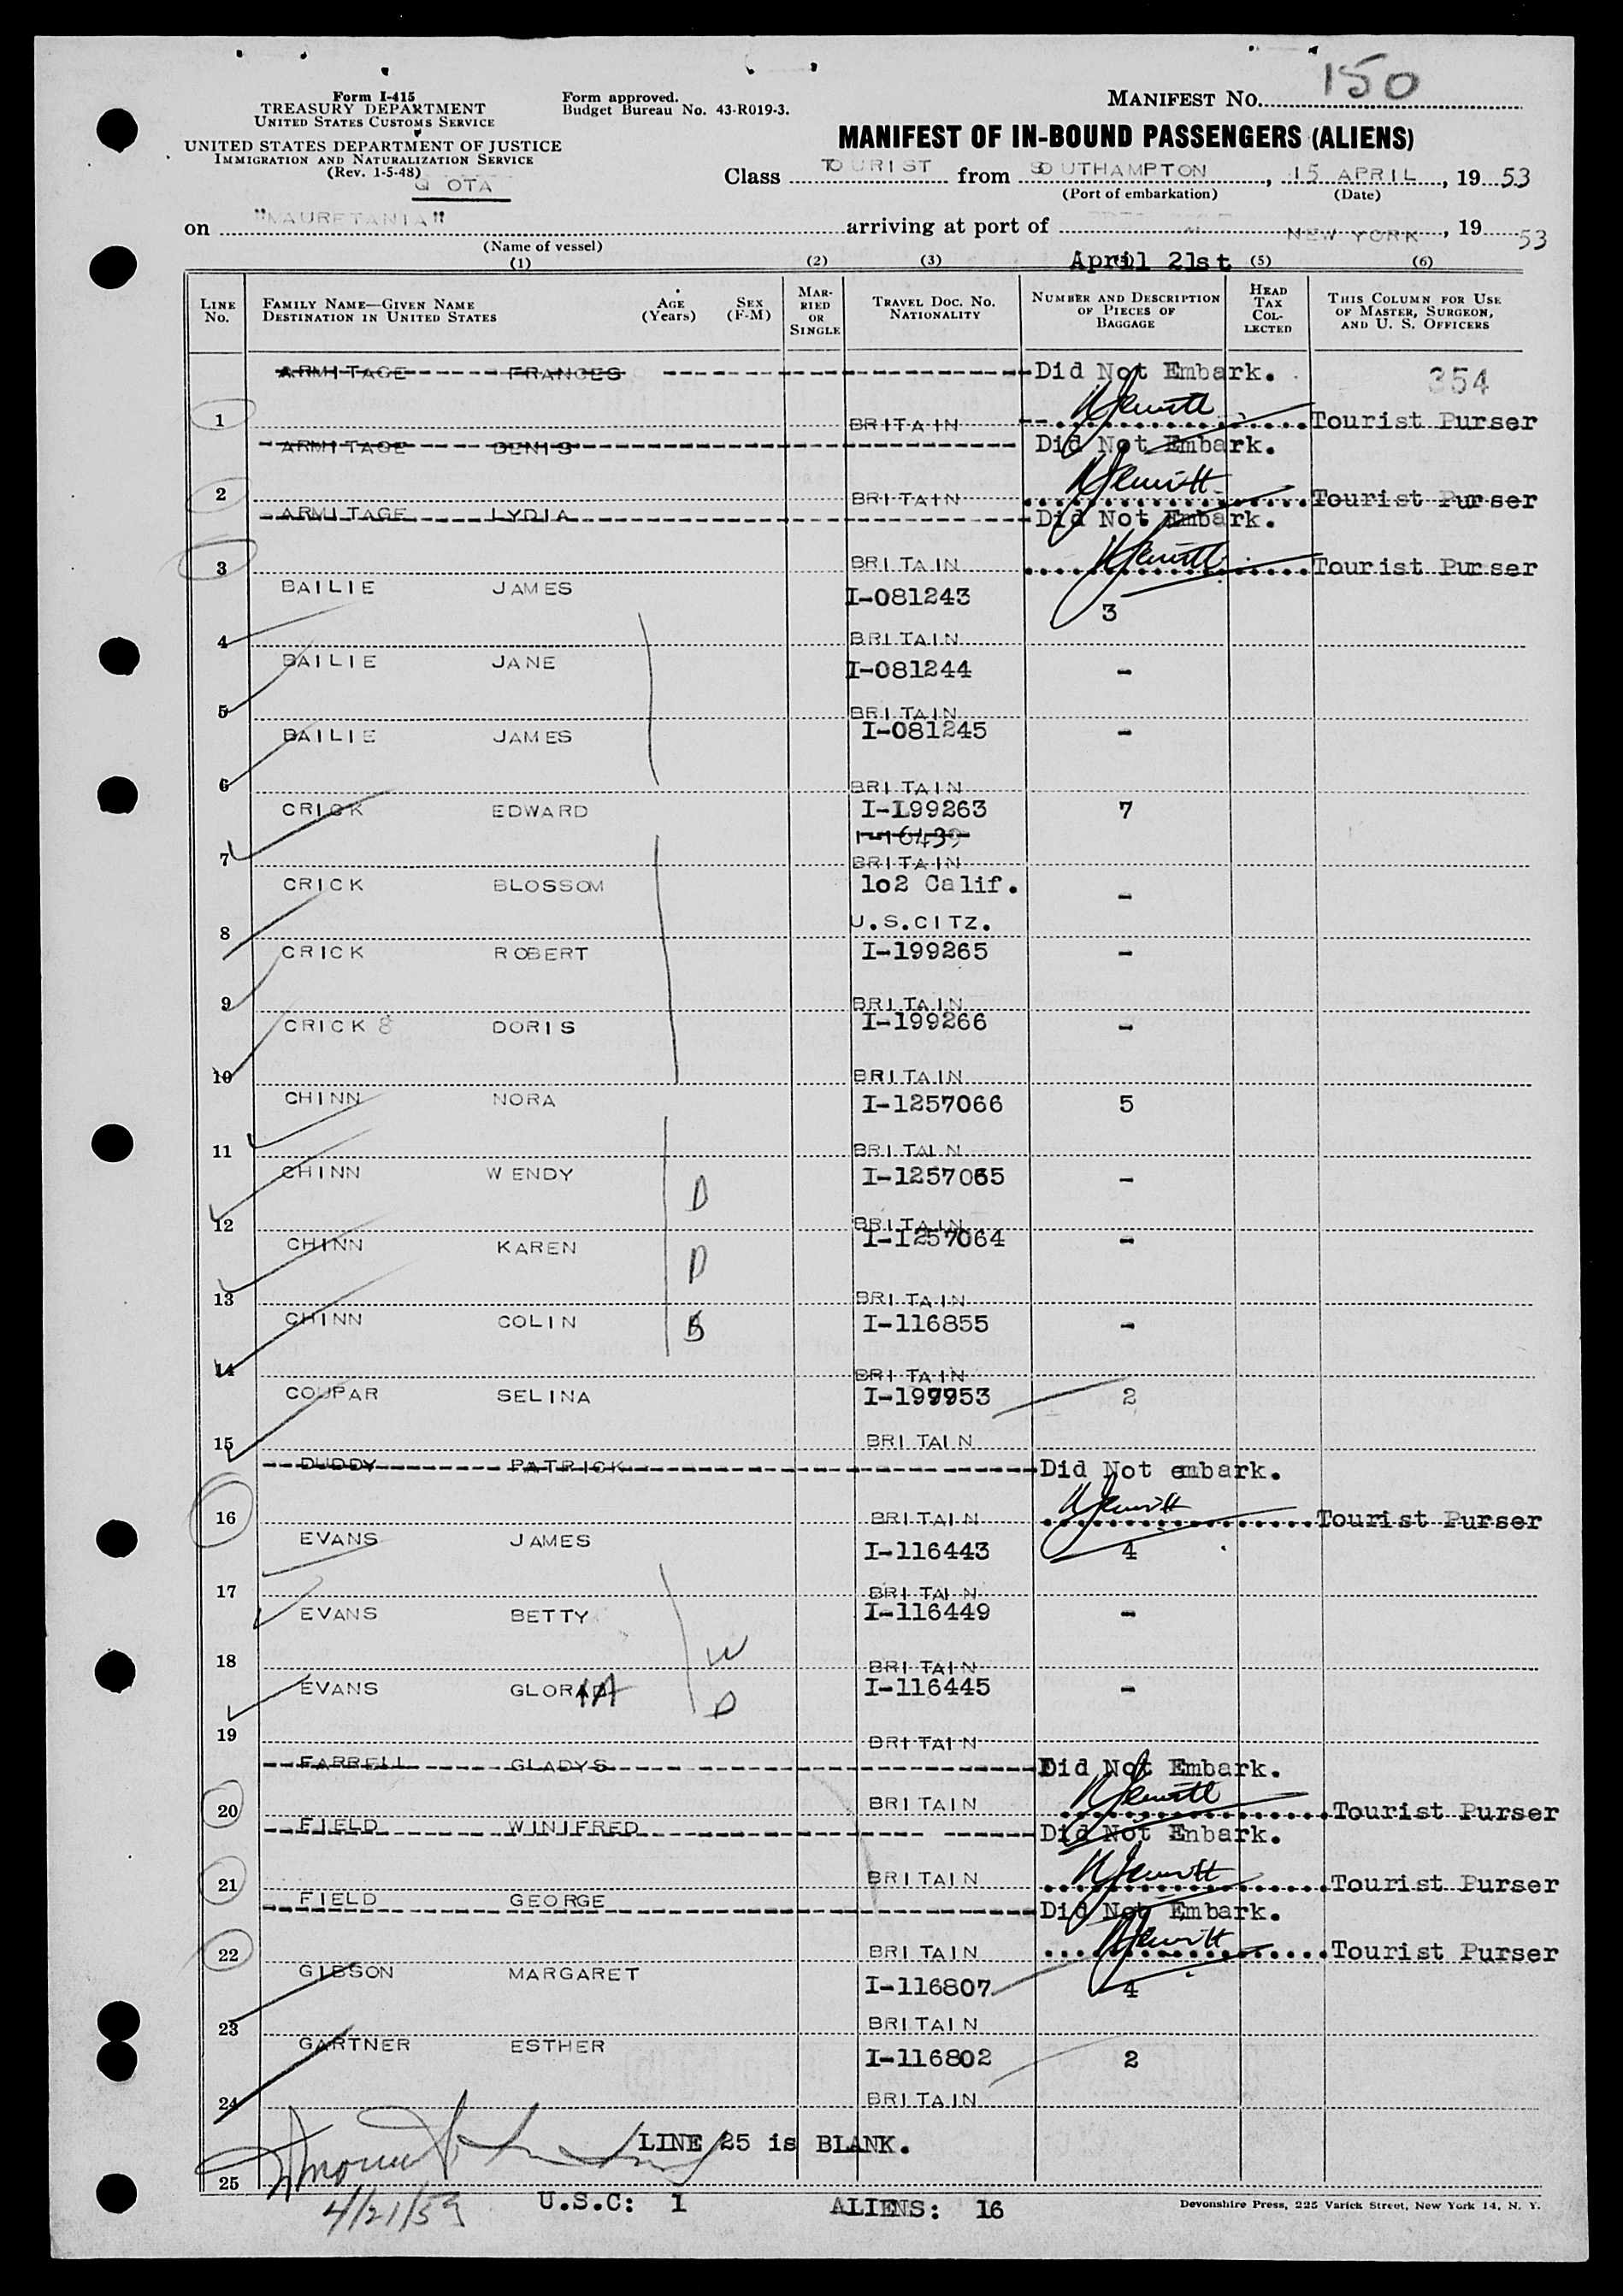 150
Form I-415
TREASURY DEPARTMENT
UNITED STATES CUSTOMS SERVICE
UNITED STATES DEPARTMENT OF JUSTICE
IMMIGRATION AND NATURALIZATION SERVICE
(Rev. 1-5-48)
Q OTA
Form approved.
Budget Bureau No. 43-R019-3.
MANIFEST NO.
MANIFEST OF IN-BOUND PASSENGERS (ALIENS)
Class TOURIST from SOUTHAMPTON, 15 APRIL, 19 53
(Port of embarkation) (Date)
on "MAURETANIA" arriving at port of NEW YORK, 19 53
(Name of vessel)
April 21st
(1) (2) (3) (5) (6)
LINE NO. FAMILY NAME—GIVEN NAME DESTINATION IN UNITED STATES AGE (Years) SEX (F-M) MARRIED OR SINGLE TRAVEL DOC. NO. NATIONALITY NUMBER AND DESCRIPTION OF PIECES OF BAGGAGE HEAD TAX COLLECTED THIS COLUMN FOR USE OF MASTER, SURGEON, AND U. S. OFFICERS
ARMITAGE FRANCES Did Not Embark. 354
1 BRITAIN Tourist Purser
ARMITAGE DENIS Did Not Embark.
2 BRITAIN Tourist Purser
ARMITAGE LYDIA Did Not Embark.
3 BRITAIN Tourist Purser
BAILIE JAMES I-081243 3
4 BRITAIN
BAILIE JANE I-081244 -
5 BRITAIN
BAILIE JAMES I-081245 -
6 BRITAIN
CRICK EDWARD I-199263 7
I-16439
7 BRITAIN
CRICK BLOSSOM 1o2 Calif. -
8 U.S.CITZ.
CRICK ROBERT I-199265 -
9 BRITAIN
CRICK DORIS I-199266 -
10 BRITAIN
CHINN NORA I-1257066 5
11 BRITAIN
CHINN WENDY D I-1257065 -
12 BRITAIN
CHINN KAREN D I-1257064 -
13 BRITAIN
CHINN COLIN I-116855 -
14 BRITAIN
COUPAR SELINA I-199953 2
15 BRITAIN
DUDDY PATRICK Did Not embark.
16 BRITAIN Tourist Purser
EVANS JAMES I-116443 4
17 BRITAIN
EVANS BETTY I-116449 -
18 W BRITAIN
EVANS GLORIA D I-116445 -
19 BRITAIN
FARRELL GLADYS Did Not Embark.
20 BRITAIN Tourist Purser
FIELD WINIFRED Did Not Enbark.
21 BRITAIN Tourist Purser
FIELD GEORGE Did Not Embark.
22 BRITAIN Tourist Purser
GIBSON MARGARET I-116807 4
23 BRITAIN
GARTNER ESTHER I-116802 2
24 BRITAIN
LINE 25 is BLANK.
25
4/21/53 U.S.C: 1 ALIENS: 16
Devonshire Press, 225 Varick Street, New York 14, N. Y.